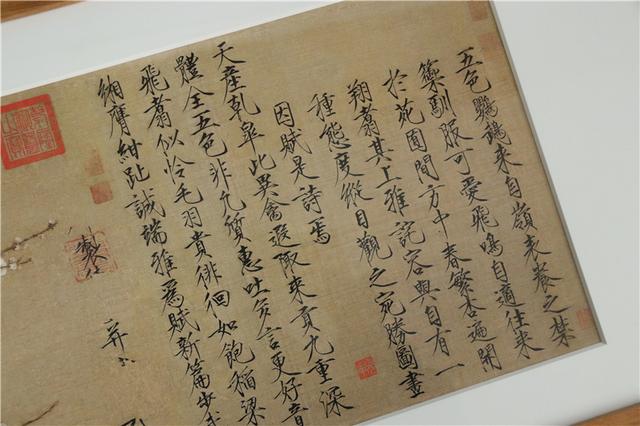 五色鸚鵡來自嶺表養之禁
籞馴服可愛飛鳴自適往來
於苑囿間方中春繁杏遍開
翔翥其上雅詫容與自有一
種態度縱目觀之宛勝圖畫
因賦是詩焉
天產乾皐此異禽遐陬來貢九重深
體全五色非凡質惠吐多言更好音
飛翥似怜毛羽貴徘徊如飽稻粱
緗膺紺趾誠端雅為賦新篇步
製
并